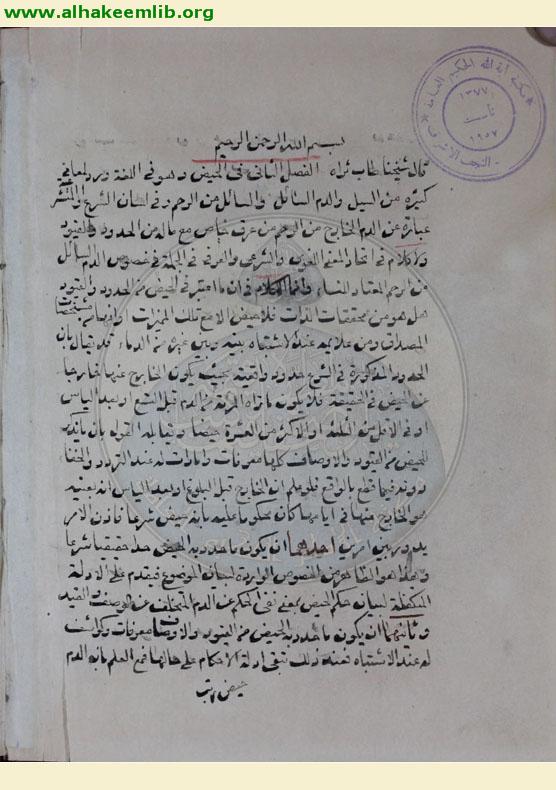 www.alhakeemlib.org
مكتبة آية الله الحكيم العامة
١٣٧٧
تأسست
١٩٥٧
النجف الاشرف
بسم الله الرحمن الرحيم
قال شيخنا طاب ثراه الفصل الثاني في الحيض وهو في اللغة ورد لمعاني
كثيرة من السيل والدم السائل والسائل من الرحم وفي لسان الشرع والمتشرعة
عبارة عن الدم الخارج من الرحم من عرق خاص مع ماله من الحدود والقيود
ولا كلام في اتحاد المعنى اللغوي والشرعي والعرفي في الجملة في خصوص الدم السائل
من الرحم المعتاد للنساء وانما الكلام في ان ما اعتبر في الحيض من الحدود والقيود
هل هو من محققات الذات فلا حيض الا مع تلك المميزات او انها من مشخصات
المصداق ومن علايمه عند الاشتباه بينه وبين غيره من الدماء فقد يقال بان
الحدود المذكورة في الشرع حدود واقعية بحيث يكون الخارج عنها خارجا
عن الحيض في الحقيقة فلا يكون ما تراه المرئة من الدم قبل التسع او بعد الياس
او في الاقل من الثلثة او الاكثر من العشرة حيضا ويقابله القول بان ما يذكر
للحيض من القيود والاوصاف كلها معرفات وامارات له عند التردد والخفاء
دونه فيما قطع بالواقع فلو علم ان الخارج قبل البلوغ او بعد الياس انه بعينه
هو الخارج منها في ايامها كان محكوما عليه بانه حيض شرعا فاذن الامر
يدور بين امرين احدهما ان يكون ما حدد به الحيض حدا حقيقيا شرعا
وهذا هو الظاهر من النصوص الواردة لبيان الموضوع فيقدم على الادلة
المتكفلة لبيان حكم الحيض بمعنى نفي الحكم عن الدم المتخلف عن الوصف والقيد
وثانيهما ان يكون ما حدد به الحيض من القيود والاوصاف معرفات وكواشف
له عند الاشتباه فعند ذلك تبقى ادلة الاحكام على حالها فمع العلم بانه الدم
حيض يترتب